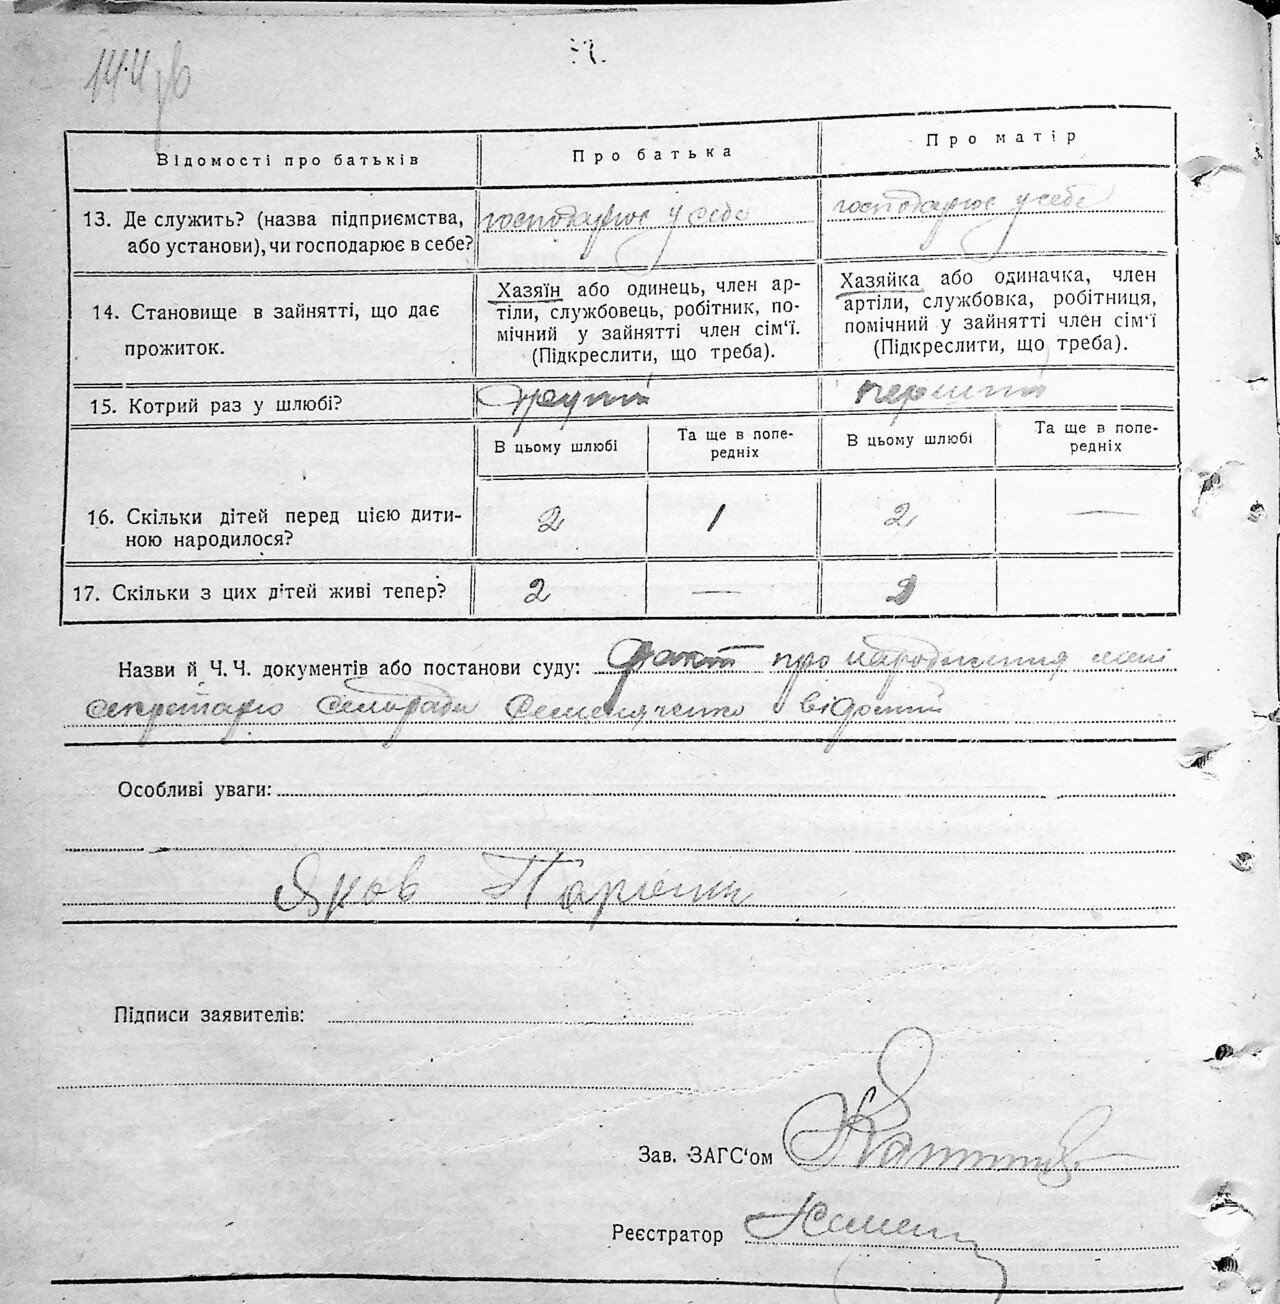 144зв
Відомості про батьків
Про батька
Про матір
13. Де служить? (назва підприємства, або установи), чи господарює в себе?
господарює у себе
господарює у себе
14. Становище в зайнятті, що дає прожиток.
Хазяїн або одинець, член артіли, службовець, робітник, помічний у зайнятті член сім‘ї. (Підкреслити, що треба).
Хазяйка або одиначка, член артіли, службовка, робітниця, помічний у зайнятті член сім‘ї (Підкреслити, що треба).
15. Котрий раз у шлюбі?
другий
перший
В цьому шлюбі
Та ще в попередніх
В цьому шлюбі
Та ще в попередніх
16. Скільки дітей перед цією дитиною народилося?
2
1
2
—
17. Скільки з цих дітей живі тепер?
2
—
2
Назви й Ч. Ч. документів або постанови суду: факт про народження мені
секретарю сельради відомий
Особливі уваги:
Яков
Підписи заявителів:
Зав. ЗАГС‘ом
Реєстратор